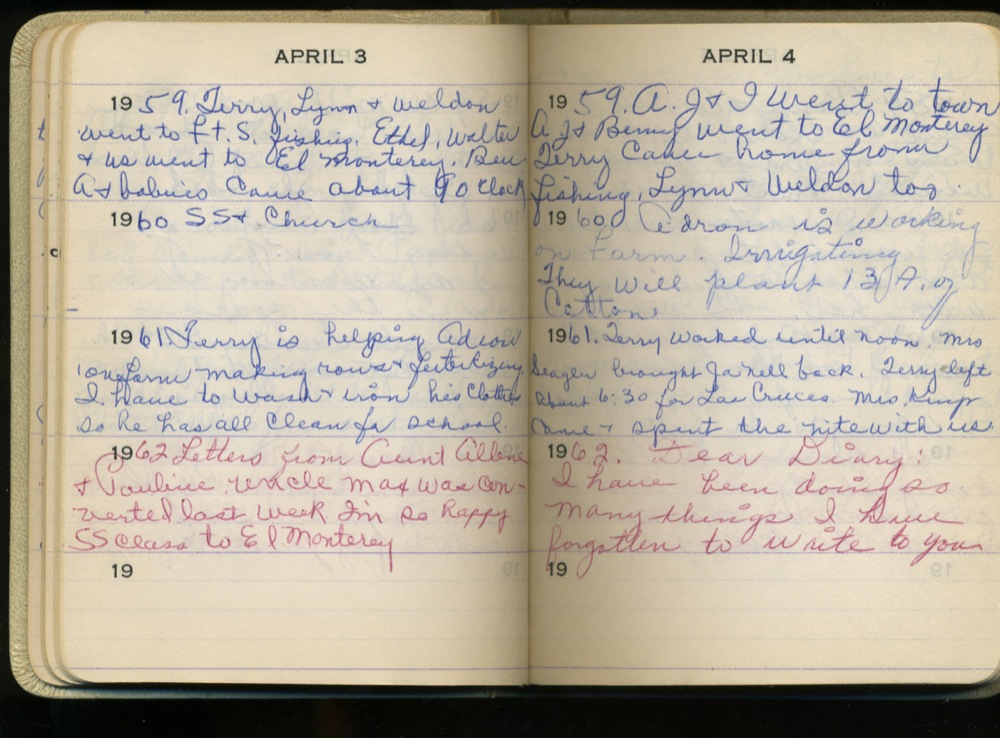 APRIL 3
1959. Terry, Lynn & Weldon
went to Ft. S. fishing. Ethel, Walter
& us went to El Monterey. Ben
A & babies Came about 9 o clock
1960 SS & Church
1961 Terry is helping Adron
on farm making rows & fertilizing.
I have to wash & iron his Clothes
so he has all Clean for school.
1962 Letters from Aunt Allene
& Pauline. Uncle Max was con-
verted last week I'm so happy
SS class to El Monterey
19
APRIL 4
1959. A. J & I went to town
A J & Benny went to El Monterey
Terry Came home from
fishing, Lynn & Weldon too.
1960 Adron is working
on Farm. Irrigating
They will plant 13 A. of
Cotton.
1961. Terry worked until noon. Mrs
brought Janell back. Terry left
about 6:30 for Las Cruces. Mrs. Kemp
came & spent the nite with us.
1962. Dear Diary:
I have been doing so
many things I have
forgotten to write to you
19